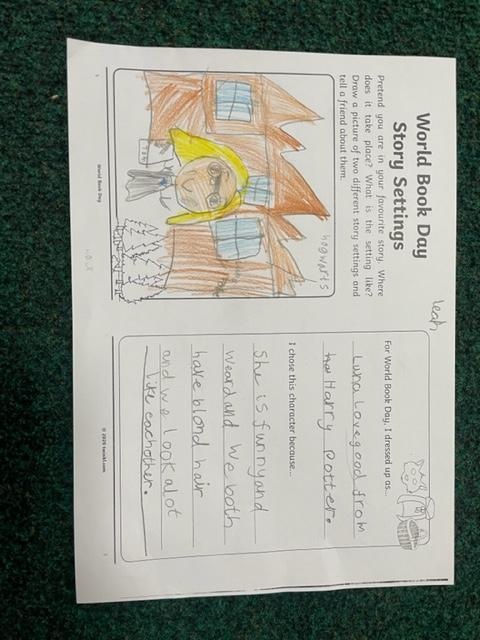 Leah
World Book Day
Story Settings
Pretend you are in your favourite story. Where
does it take place? What is the setting like?
Draw a picture of two different story settings and
tell a friend about them.
hogwarts
World Book Day
For World Book Day, I dressed up as...
Luna Lovegood from
Harry Potter.
I chose this character because...
She is funny and
Weard and we both
have blond hair
and we look alot
like eachother.